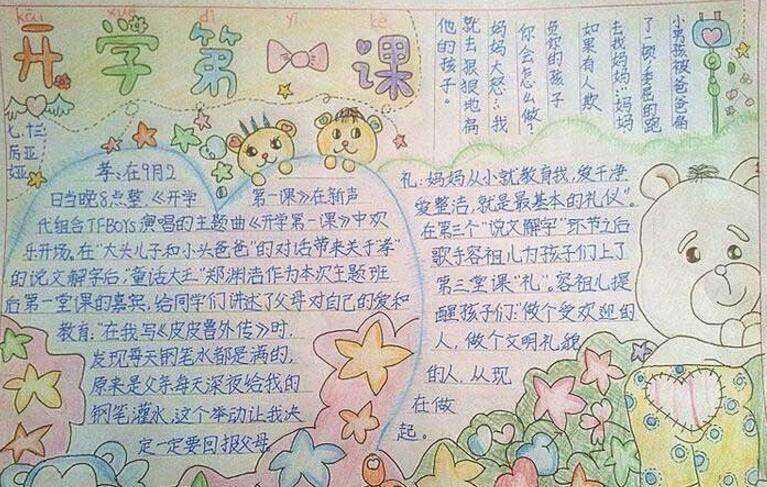 kai xue di yi ke
开学第课
小男孩被爸爸扁
了一顿,委屈的跑
去找妈妈:"妈妈
如果有人欺
负你的孩子
你会怎么做?
妈妈大怒:"我
就去狠狠地扁
他的孩子。
孝:在9月2
日当晚8点整,《开学第一课》在新声
代组合TFBOYS演唱的主题曲《开学第一课》中欢
乐开场,在"大头儿子和小头爸爸"的对话带来关于"孝"
的说文解字后,"童话大王"郑渊浩作为本次主题班
后第一堂课的嘉宾,给同学们讲述了父母对自己的爱和
教育:"在我写《皮皮鲁外传》时,
发现每天钢笔水都是满的,
原来是父亲每天深夜给我的
钢笔灌水,这个举动让我决
定一定要回报父母。
礼:妈妈从小就教育我,爱干净
爱整洁,就是最基本的礼仪"。
在第三个"说文解字"环节之后
歌手容祖儿为孩子们上了
第三堂课"礼"。容祖儿提
醒孩子们:"做个受欢迎的
人,做个文明礼貌
的人,从现
在做
起。